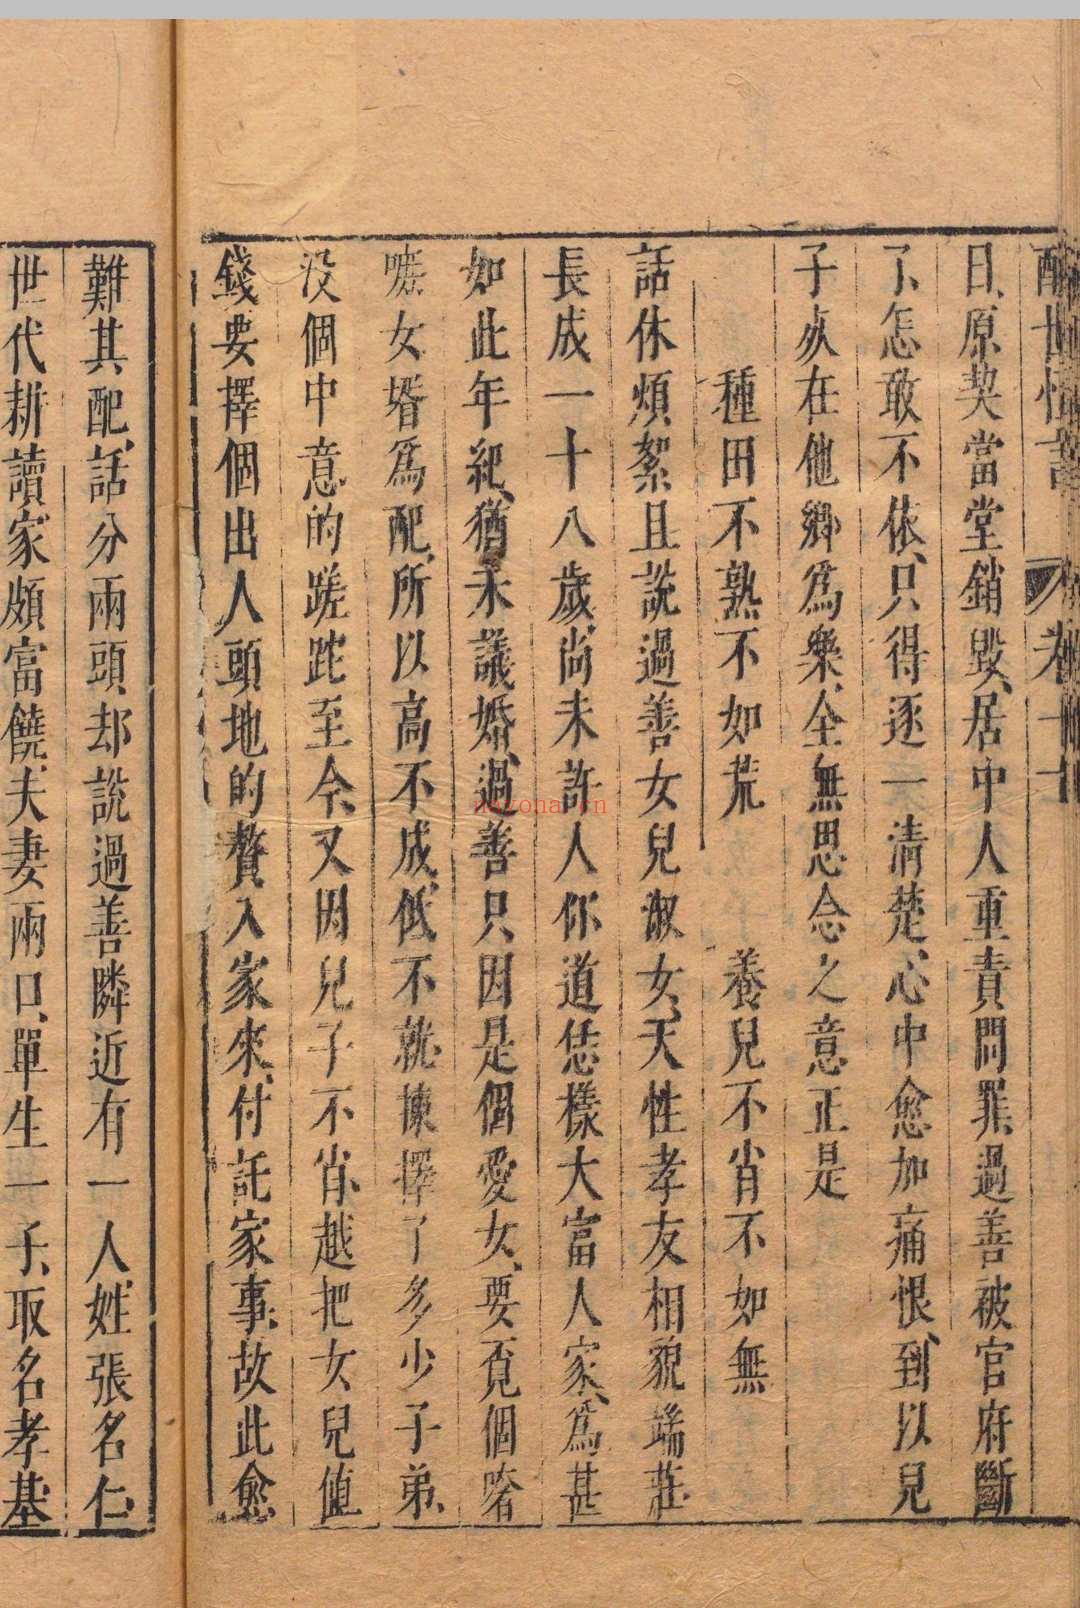 醒世恒言 卷十
日、原契當堂銷毀、居中人重責問罪、過善被官府斷
了、怎敢不依、只得逐一清楚、心中愈加痛恨、到以兒
子㱾在他鄉爲樂、全無思念之意正是
種田不熟不如荒 養兒不肖不如無
話休煩絮且説過善女兒淑女、天性孝友相貌端莊
長成一十八歲、尚未許人你道恁樣大富人家、爲甚
如此年紀、猶未議婚、過善只因是個愛女、要覓個喒
嗻女壻爲配、所以高不成、低不就揀擇了多少子弟、
没個中意的蹉跎至今、又因兒子不肖、越把女兒値
錢要擇個出人頭地的贅入家來、付託家事、故此愈
難其配、話分兩頭、却説過善隣近有一人、姓張名仁、
世代耕讀家頗富饒、夫妻兩口、單生一子、取名孝基
nazonai.cn